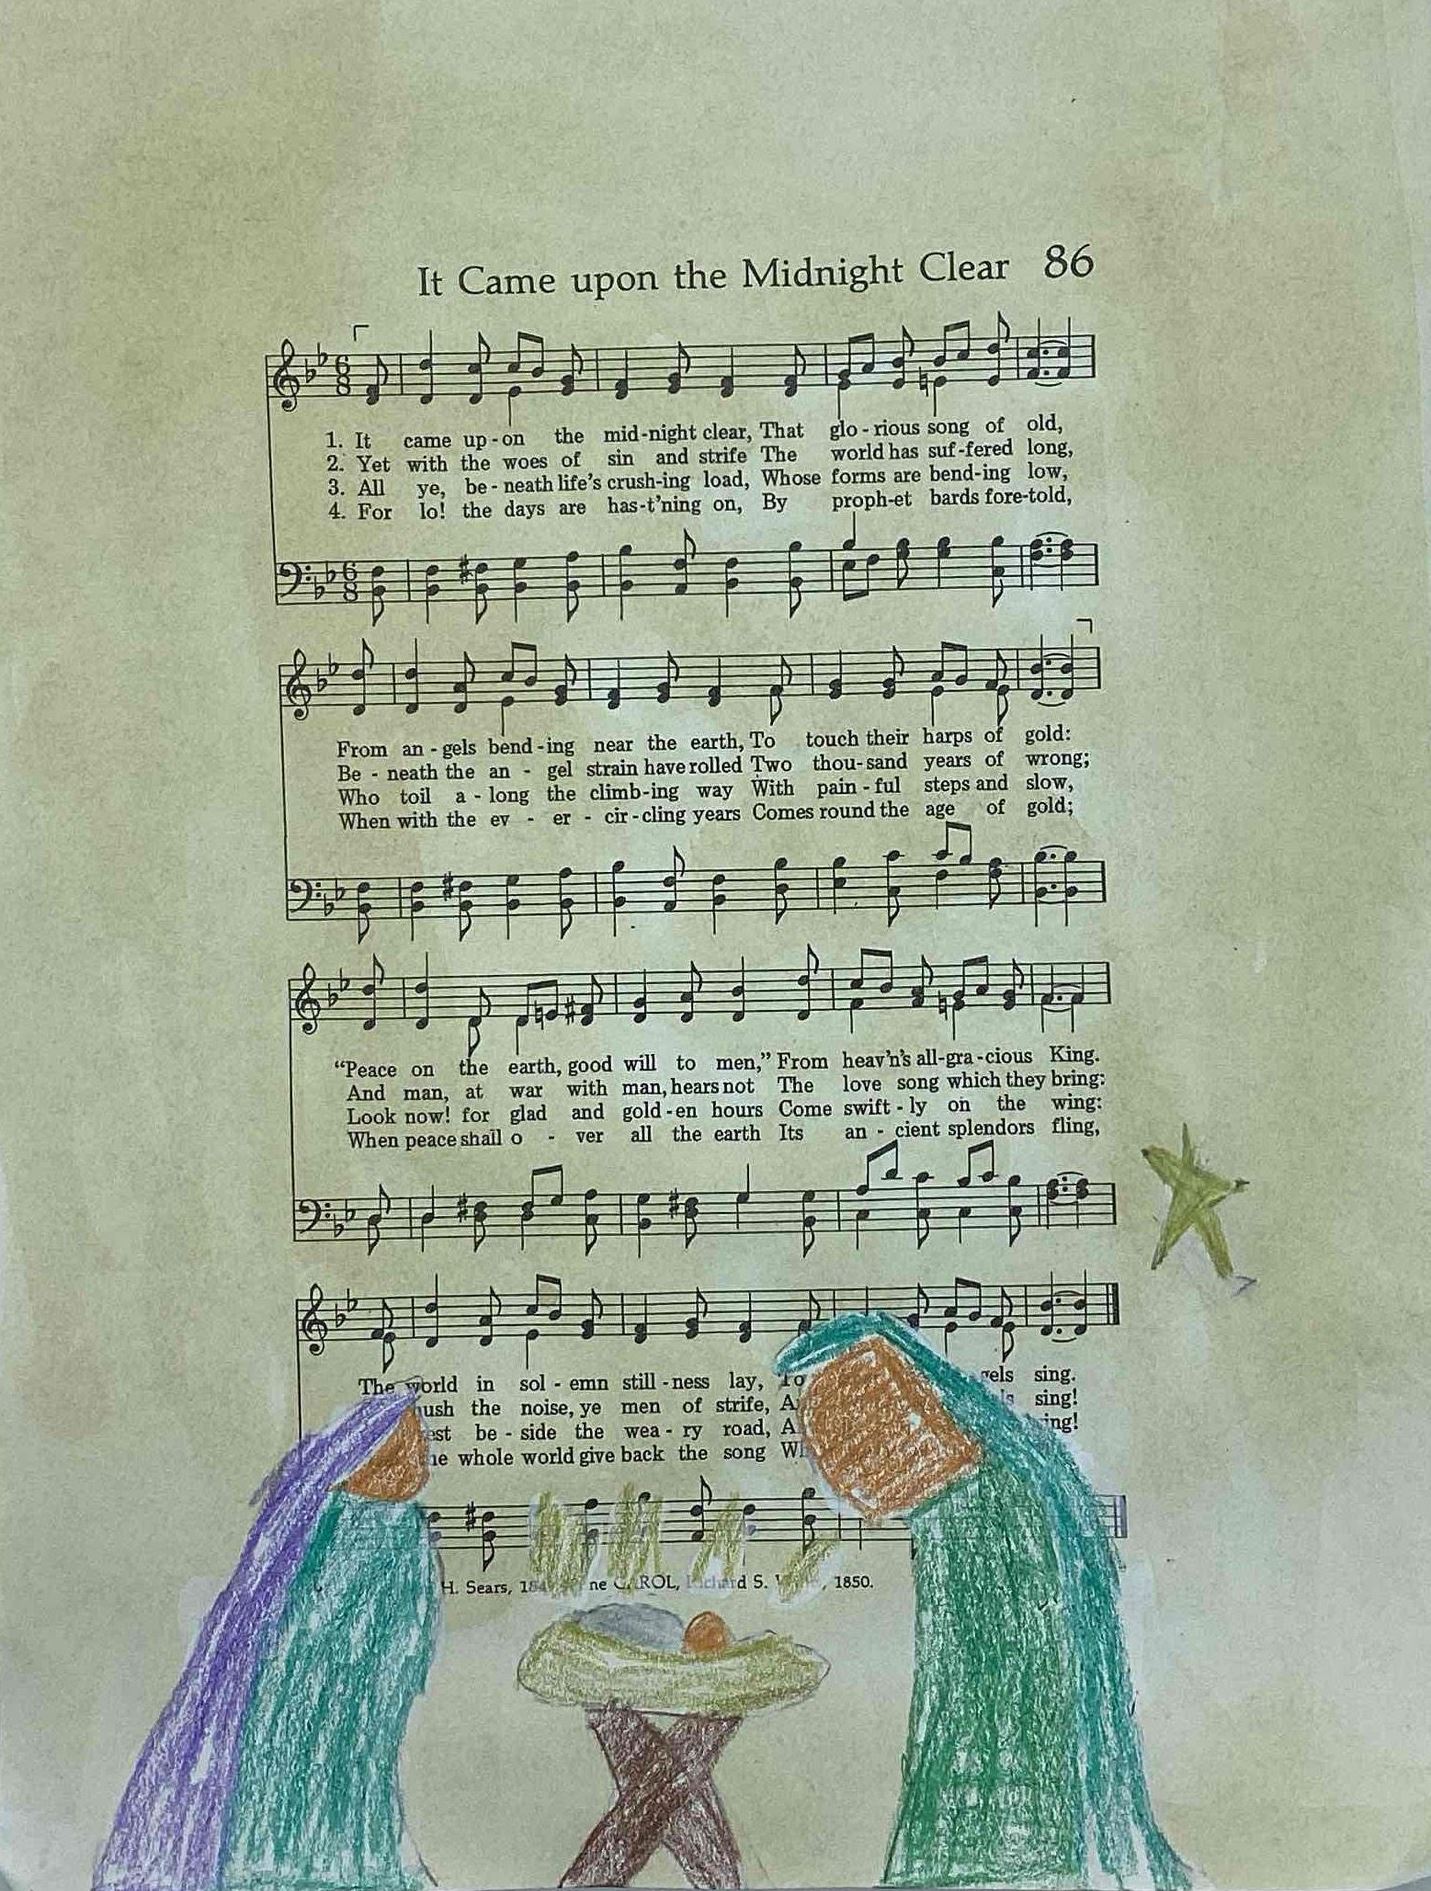 It Came upon the Midnight Clear 86
1. It came up-on the mid-night clear, That glo-rious song of old,
2. Yet with the woes of sin and strife The world has suf-fered long,
3. All ye, be-neath life's crush-ing load, Whose forms are bend-ing low,
4. For lo! the days are has-t'ning on, By proph-et bards fore-told,
From an-gels bend-ing near the earth, To touch their harps of gold:
Be-neath the an-gel strain have rolled Two thou-sand years of wrong;
Who toil a-long the climb-ing way With pain-ful steps and slow,
When with the ev-er-cir-cling years Comes round the age of gold;
"Peace on the earth, good will to men," From heav'n's all-gra-cious King.
And man, at war with man, hears not The love song which they bring:
Look now! for glad and gold-en hours Come swift-ly on the wing:
When peace shall o-ver all the earth Its an-cient splendors fling,
The world in sol-emn still-ness lay, To gels sing.
ush the noise, ye men of strife, A sing!
est be-side the wea-ry road, A ing!
he whole world give back the song Wh
H. Sears, 184 ne CAROL, Richard S. W , 1850.